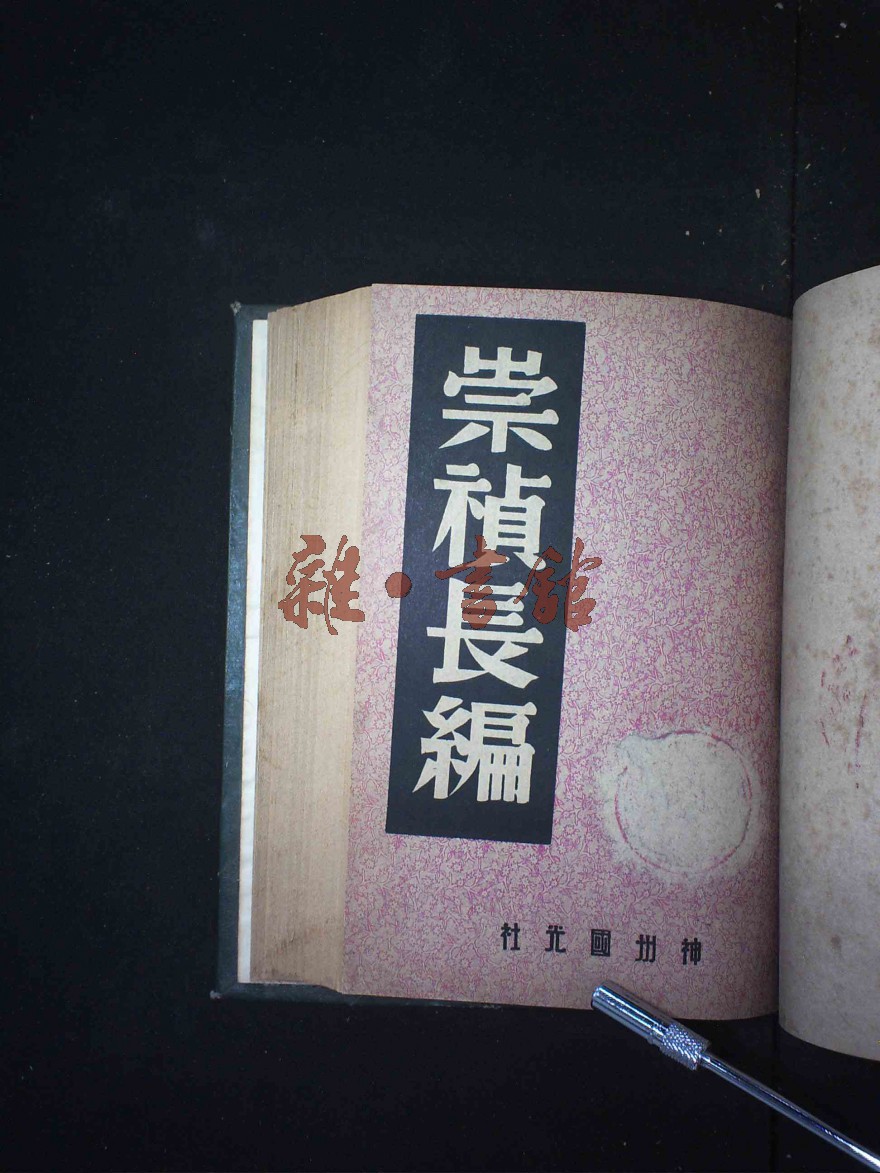 崇禎長編
雜·書館
神州國光社